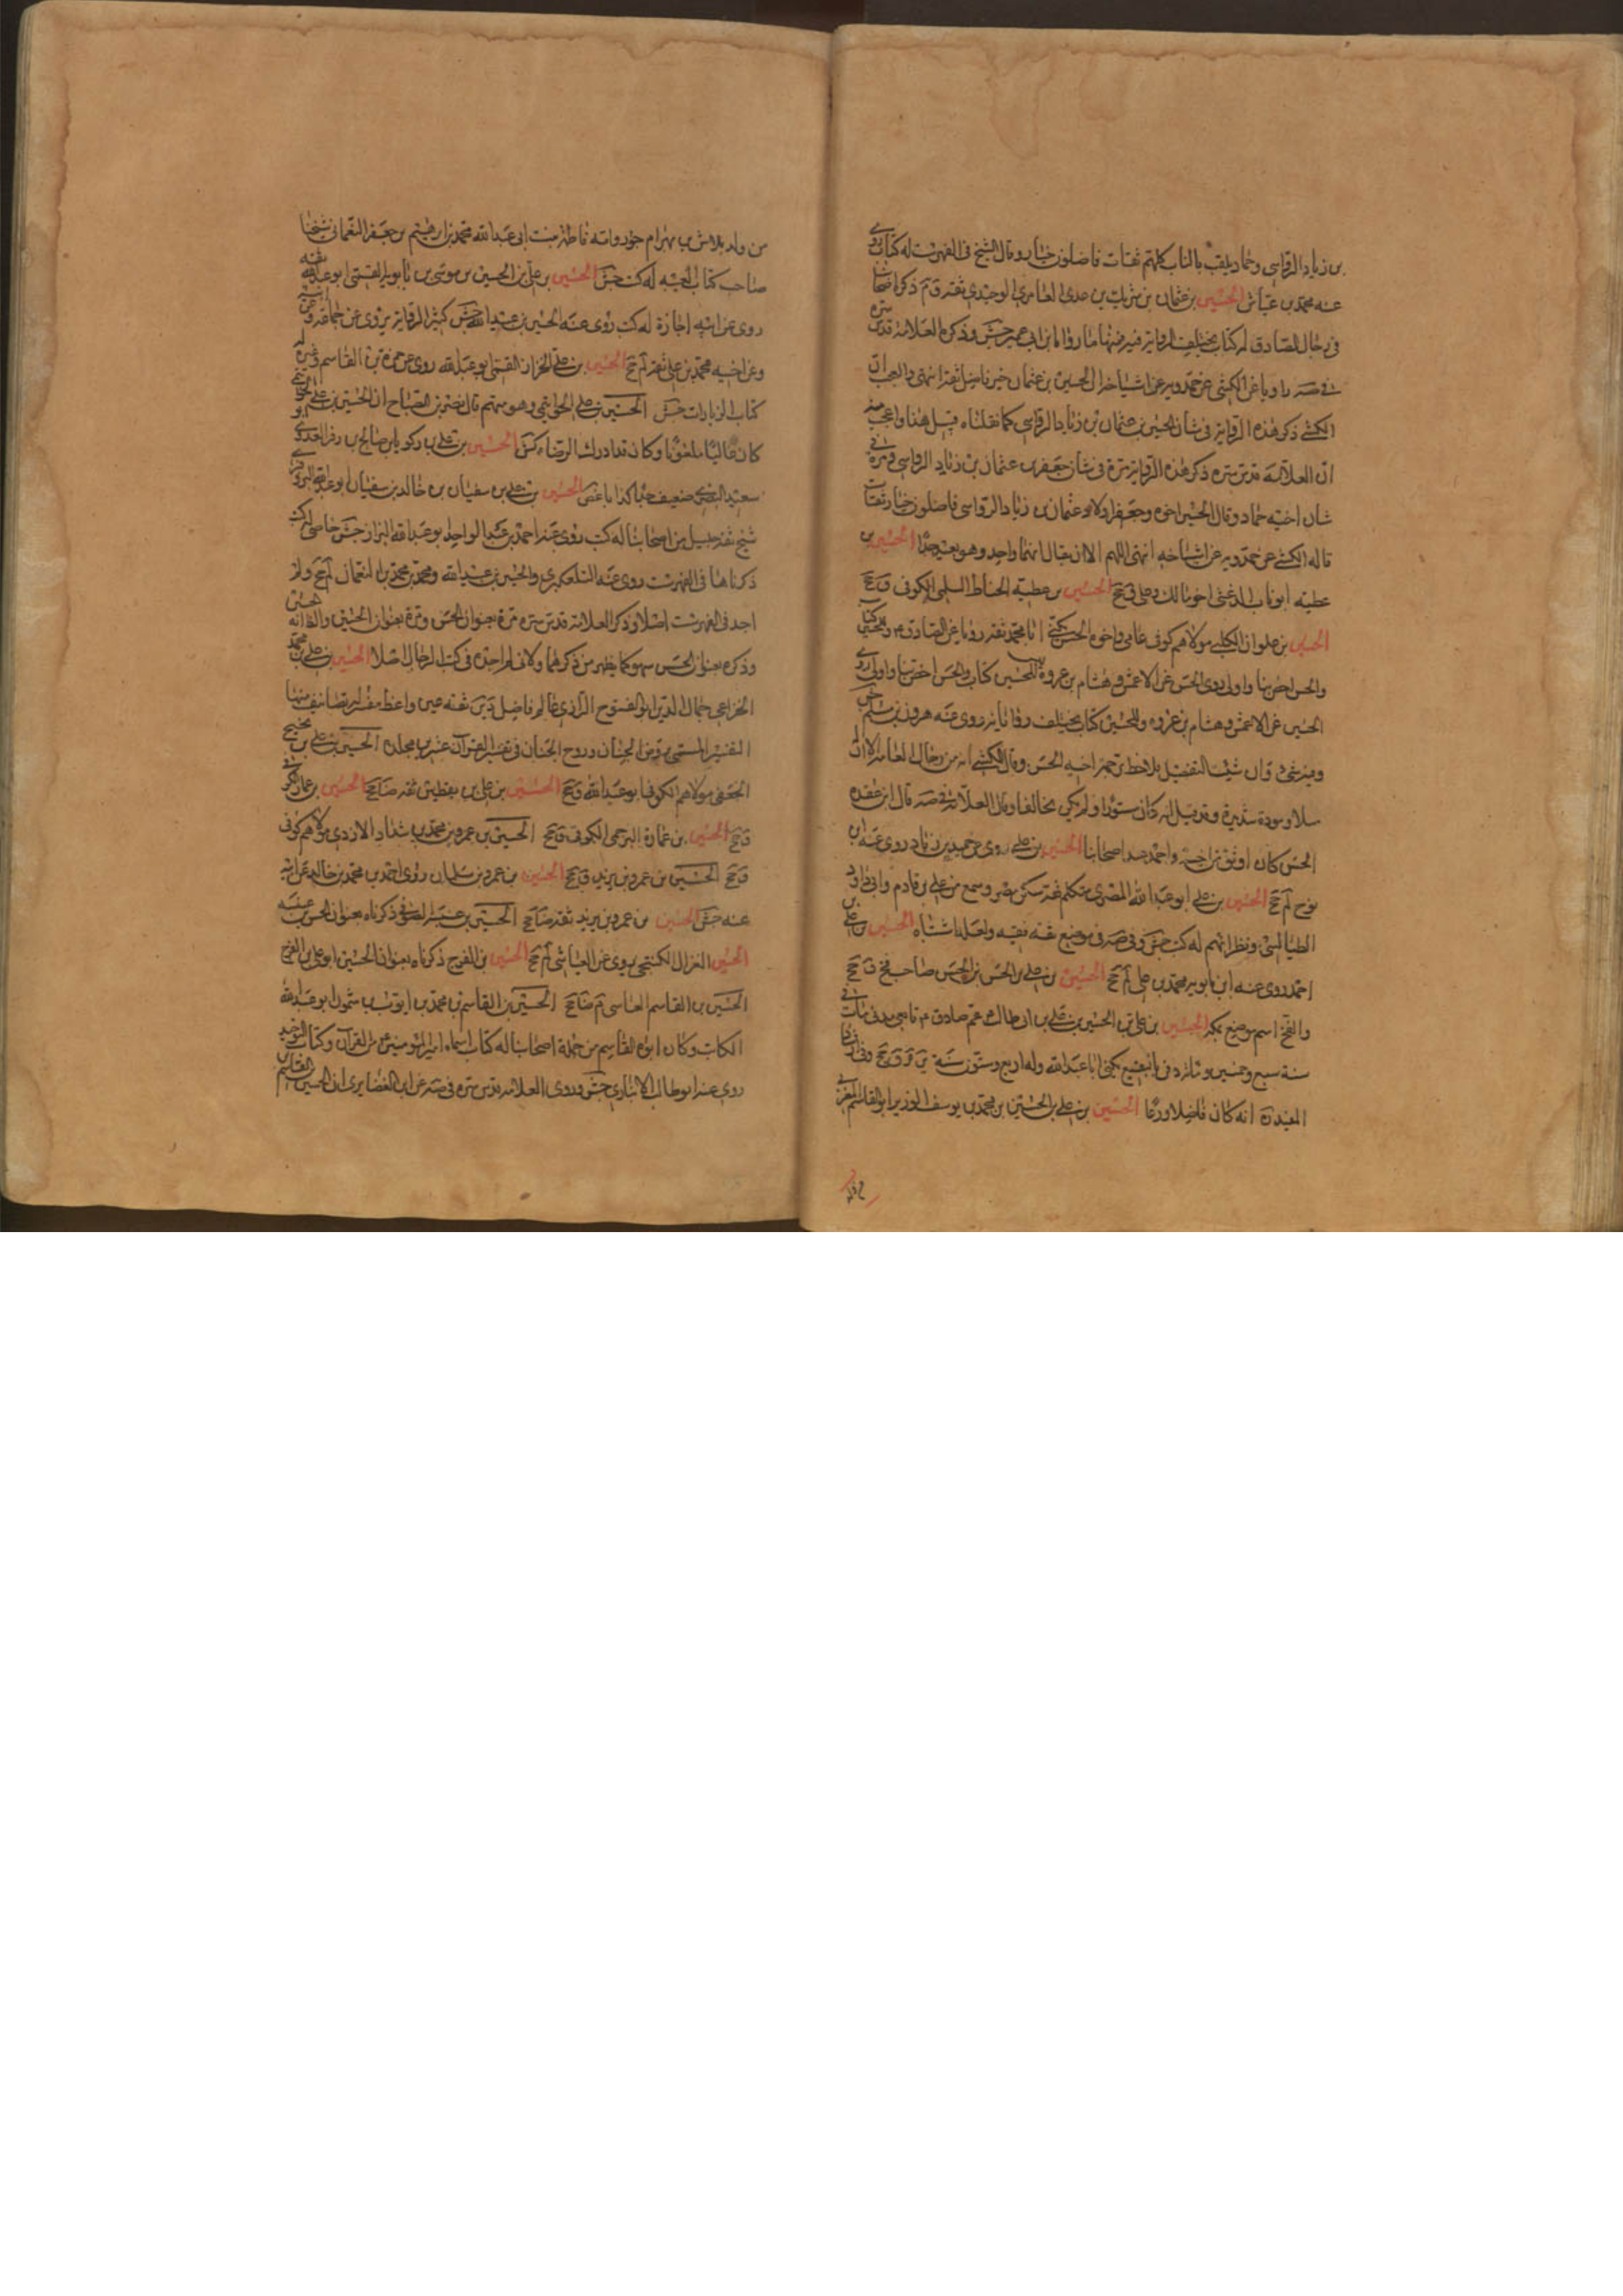 بن زياد الرواسي وحماد يلقب بالناب كلهم ثقات فاضلون خيار وقال الشيخ في الفهرست له كتاب روى
عنه محمد بن عياش الحسين بن عثمان بن شريك بن عدي العامري الوحيدي ثقة ق م ذكره اصحابنا
في رجال الصادق له كتاب تختلف الرواية فيه فمنها ما رواه ابن ابي عمير جش وذكره العلامة قدس سره
في صه راويا عن الكشي عن حمدويه عن اشياخه ان الحسين بن عثمان خير فاضل ثقة انتهى والعجب ان
الكشي ذكر هذه الرواية في شان الحسين بن عثمان بن زياد الرواسي كما نقلناه قبيل هذا واعجب منه
ان العلامة قدس سره ذكر هذه الرواية مرة في شان جعفر بن عثمان بن زياد الرواسي ومرة في
شان اخيه حماد وقال الحسين اخوه وجعفر اولاد عثمان بن زياد الرواسي فاضلون خيار ثقات
قاله الكشي عن حمدويه عن اشياخه انتهى اللهم الا ان يقال انهما واحد وهو بعيد جدا الحسين بن
عطية ابو ناب الدغشي اخو مالك وعلي ق جخ الحسين بن عطية الحناط السلمي الكوفي ق جخ
الحسين بن علوان الكلبي مولاهم كوفي عامي واخوه الحسن يكنى ابا محمد ثقة رويا عن الصادق م وللحسين كتاب
والحسن اخص بنا واولى روى الحسن عن الاعمش وهشام بن عروة للحسين كتاب والحسن اخص بنا واولى روى
الحسين عن الاعمش وهشام بن عروه وللحسين كتاب تختلف رواياته روى عنه هرون بن مسلم جش
سلا ومودة شديدة وقد قيل انه كان مستورا ولم يكن مخالفا وقال العلامة في صه قال ابن عقده
الحسن كان اوثق من اخيه واحمد عند اصحابنا الحسين بن علي روى عن حميد بن زياد روى عنه ابن
نوح لم جخ الحسين بن علي ابو عبد الله المصري متكلم ثقة سكن مصر وسمع من علي بن قادم وابي داود
الطيالسي ونظرائهم له كتب جش وفي صه في موضع ثقة فقيه ولعله اشتباه الحسين بن علي بن
احمد روى عنه ابن بابويه محمد بن علي لم جخ الحسين بن علي بن الحسن بن الحسن صاحب فخ ق جخ
والفخ اسم موضع بمكة الحسين بن علي بن الحسين بن علي بن ابي طالب عم صادق م تابعي مدني مات في
سنة سبع وخمسين ومائة دفن بالبقيع يكنى ابا عبد الله وله اربع وستون سنة ين قر ق جخ وفي ارشاد
المفيد ره انه كان فاضلا ورعا الحسين بن علي بن الحسين بن محمد بن يوسف الوزير ابو القاسم المغربي
من ولد بلاش بن بهرام جور وامه فاطمة بنت ابي عبد الله محمد بن ابرهيم بن جعفر النعماني شيخنا
صاحب كتاب الغيبة له كتب جش الحسين بن علي بن الحسين بن موسى بن بابويه القمي ابو عبد الله ثقة
روى عن ابيه اجازة له كتب روى عنه الحسين بن عبيد الله جش كثير الرواية يروي عن جماعة وعن ابيه
وعن اخيه محمد بن علي ثقة لم جخ الحسين بن علي الخزاز القمي ابو عبد الله روى عن حمزة بن القاسم وغيره له
كتاب الزيارات جش الحسين بن علي الخواتيمي وهو متهم قال نصر بن الصباح ان الحسين بن علي الخواتيمي
كان غاليا ملعونا وكان قد ادرك الرضا كش الحسين بن علي بن زكريا بن صالح بن زفر العدوي ابو
سعيد البصري ضعيف جدا كذاب غض الحسين بن علي بن سفيان بن خالد بن سفيان ابو عبد الله البزوفري
شيخ ثقة جليل من اصحابنا له كتب روى عنه احمد بن عبد الواحد ابو عبد الله البزاز جش خاصي له كتب
ذكرناها في الفهرست روى عنه التلعكبري والحسين بن عبيد الله ومحمد بن محمد بن النعمان لم جخ ولم
اجد في الفهرست اصلا وذكر العلامة قدس سره مرة بعنوان الحسن ومرة بعنوان الحسين والظ انه الحسين
وذكره بعنوان الحسن سهو كما يظهر من ذكر هما ولاني لم اجده في كتب الرجال اصلا الحسين بن علي بن محمد
الخزاعي جمال الدين ابو الفتوح الرازي عالم فاضل دين ثقة عين واعظ مفسر له تصانيف منها
التفسير المسمى بروض الجنان وروح الجنان في تفسير القرآن عشرين مجلدة الحسين بن علي بن نجيح
الجعفي مولاهم الكوفي ابو عبد الله ق جخ الحسين بن علي بن يقطين ثقة ضا جخ الحسين بن عمار الكوفي
ق جخ الحسين بن عمارة البرجمي الكوفي ق جخ الحسين بن عمرو بن محمد بن شداد الازدي مولاهم كوفي
ق جخ الحسين بن عمرو بن يزيد ق جخ الحسين بن عمرو بن سلمان روى احمد بن محمد بن خالد عن ابيه
عنه جش الحسين بن عمرو بن يزيد ثقة ضا جخ الحسين بن عنبسة الصوفي ذكرناه بعنوان الحسن بن عنبسه
الحسين الغزال الكنتجي يروي عن العياشي لم جخ الحسين بن الفرج ذكرناه بعنوان الحسين ابو علي بن الفرج
الحسين بن القاسم العباسي م ضا جخ الحسين بن القاسم بن محمد بن ايوب بن شمون ابو عبد الله
الكاتب وكان ابوه القاسم من جملة اصحابنا له كتاب اسماء امير المؤمنين من القرآن وكتاب التوحيد
روى عنه ابو طالب الانباري جش وروى العلامة قدس سره في صه عن ابن الغضايري ان الحسين بن القاسم